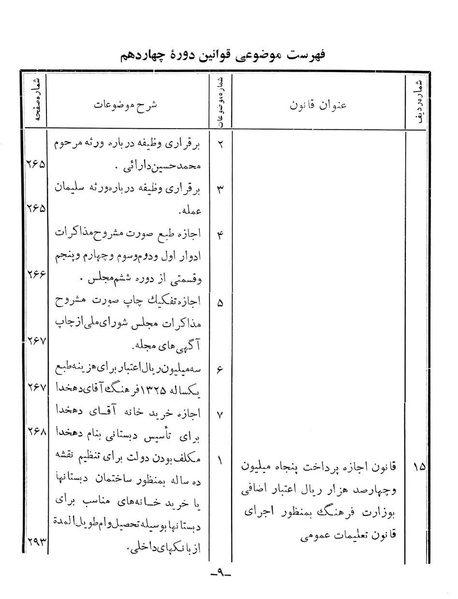 فهرست موضوعی قوانین دورهٔ چهاردهم
شماره ردیف
عنوان قانون
شماره موضوعات
شرح موضوعات
شماره صفحه
۲
برقراری وظیفه درباره ورثه مرحوم
محمدحسین دارائی .
۲۶۵
۳
برقراری وظیفه درباره ورثه سلیمان
عمله.
۲۶۵
۴
اجازه طبع صورت مشروح مذاکرات
ادوار اول ودوم وسوم وچهارم وپنجم
وقسمتی از دوره ششم مجلس .
۲۶۶
۵
اجازه تفکیک چاپ صورت مشروح
مذاکرات مجلس شورای ملی از چاپ
آگهی های مجله.
۲۶۷
۶
سه میلیون ریال اعتبار برای هزینه طبع
یکساله ۱۳۲۵ فرهنگ آقای دهخدا
۲۶۷
۷
اجازه خرید خانه آقای دهخدا
برای تأسیس دبستانی بنام دهخدا
۲۶۸
۱۵
قانون اجازه پرداخت پنجاه میلیون
وچهارصد هزار ریال اعتبار اضافی
بوزارت فرهنگ بمنظور اجرای
قانون تعلیمات عمومی
۱
مکلف بودن دولت برای تنظیم نقشه
ده ساله بمنظور ساختمان دبستانها
یا خرید خانه های مناسب برای
دبستانها بوسیله تحصیل وام طویل المدة
از بانکهای داخلی.
۲۹۳
-۹-